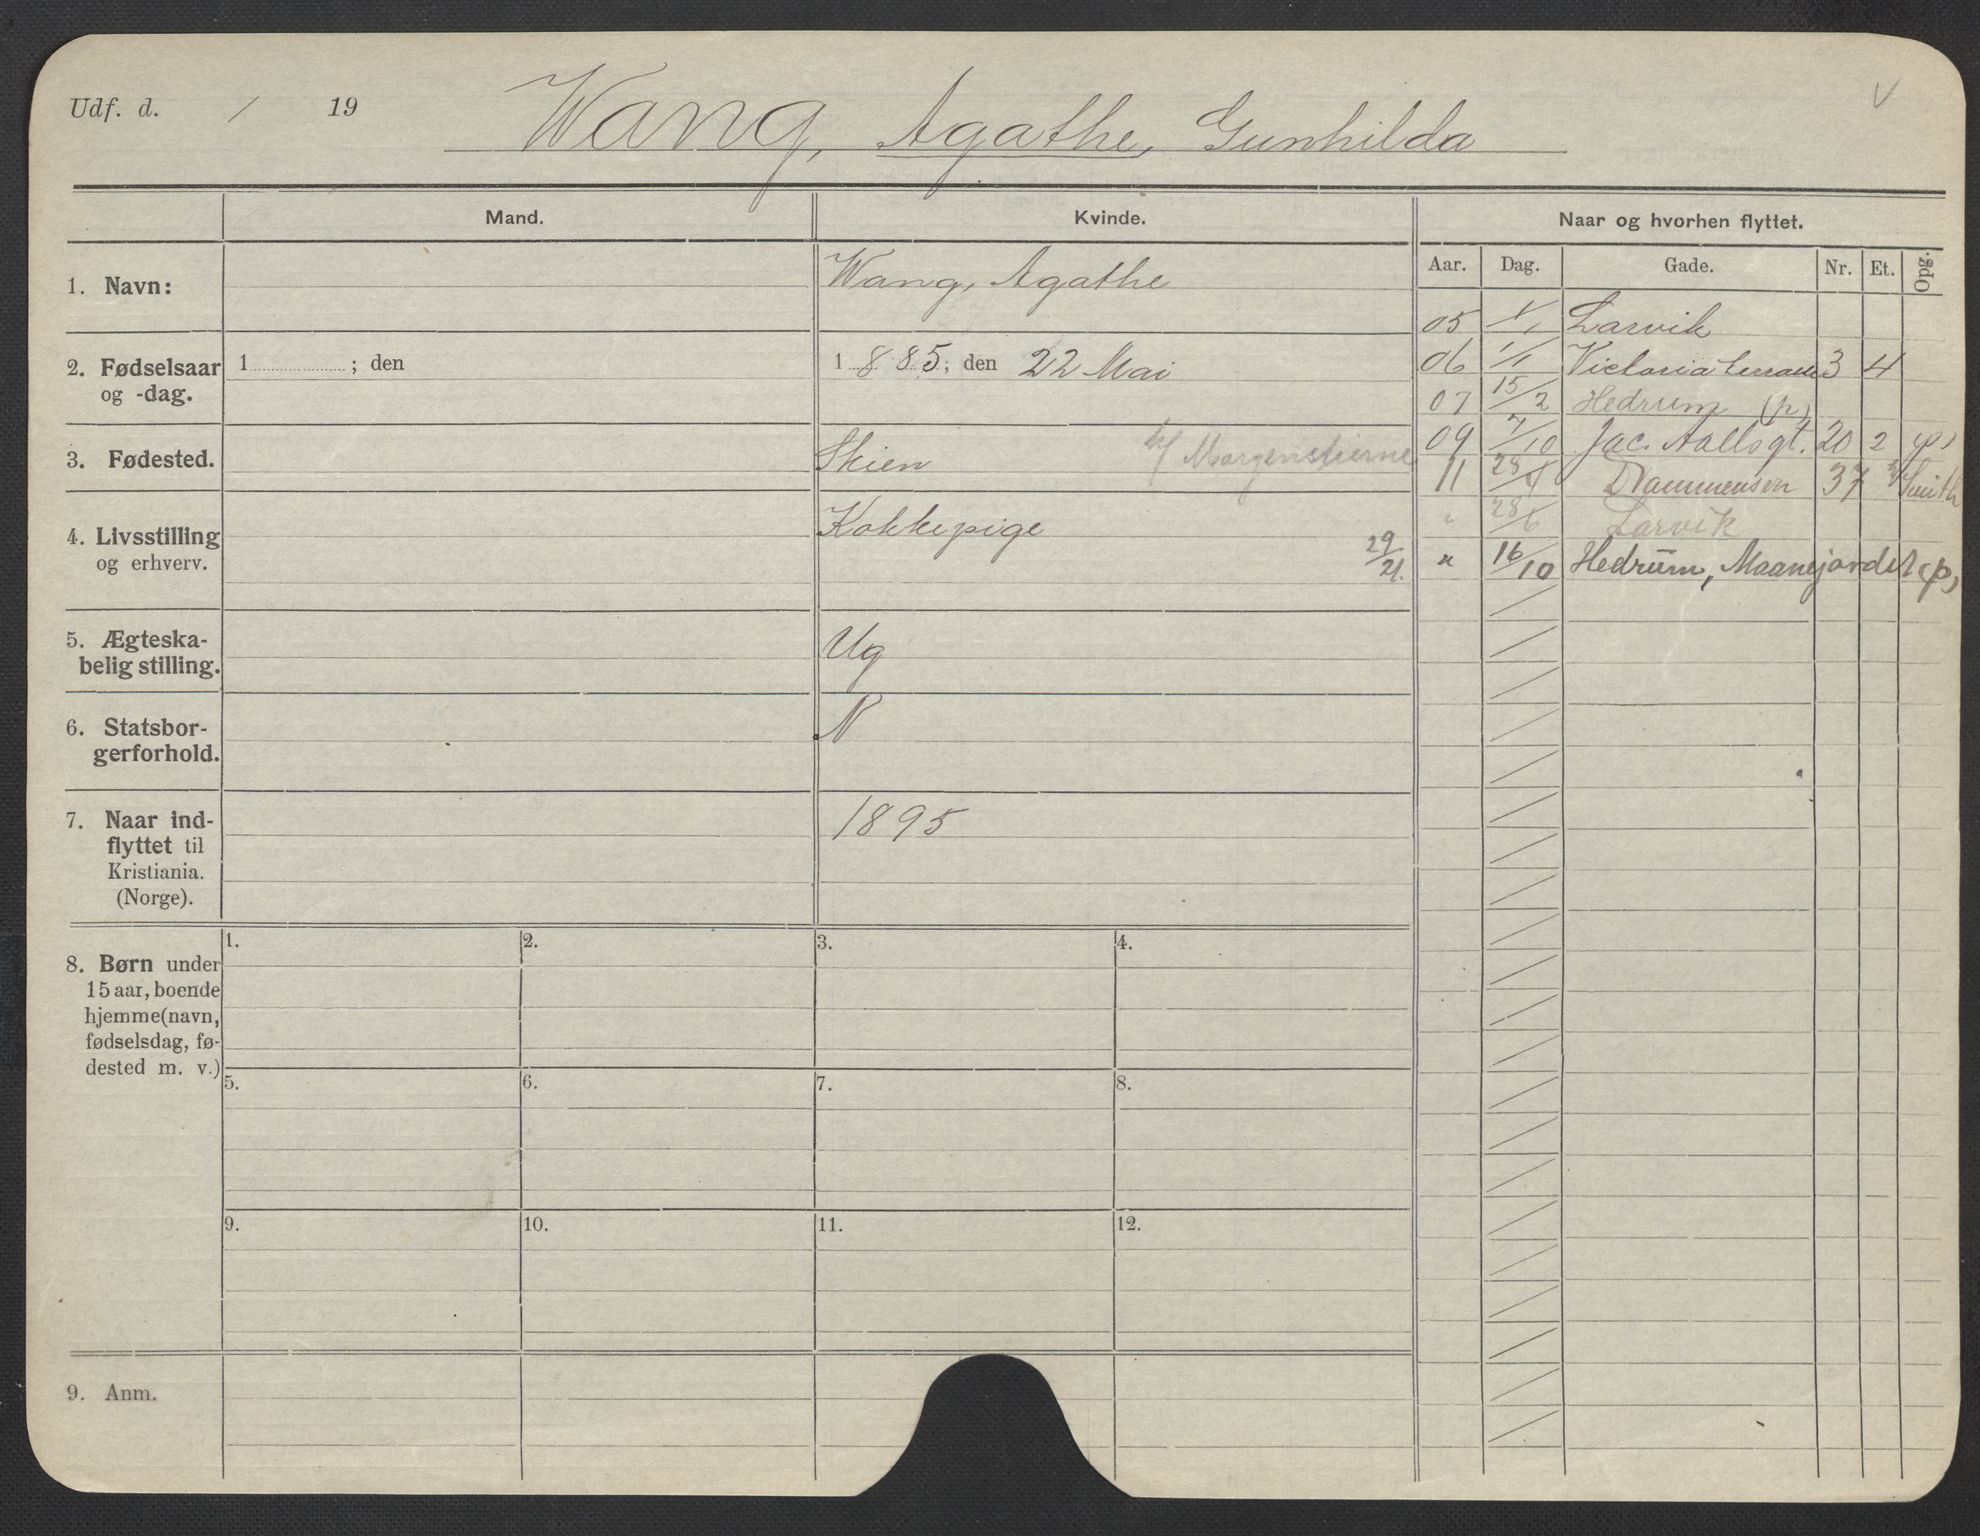 Udf. d. / 19
Wang, Agathe, Gunhilda
Mand. Kvinde. Naar og hvorhen flyttet.
Aar. Dag. Gade. Nr. Et. Opg.
1. Navn: Wang, Agathe
2. Fødselsaar og -dag. 1 ; den 1885; den 22 Mai
3. Fødested. Skien
h/ Morgenstierne
4. Livsstilling og erhverv. Kokkepige
29/21.
5. Ægteska-
belig stilling. Ug
6. Statsbor-
gerforhold. N
7. Naar ind-
flyttet til
Kristiania.
(Norge). 1895
05 1/1 Larvik
06 1/1 Victoria terrasse 3 4
07 15/2 Hedrum (p)
09 7/10 Jac. Aallsgt. 20 2 (p)
11 25/4 Drammensvn 37 h/ Smith
" 28/6 Larvik
" 16/10 Hedrum, Maanejordet (p)
8. Børn under
15 aar, boende
hjemme (navn,
fødselsdag, fø-
dested m. v.)
1. 2. 3. 4.
5. 6. 7. 8.
9. 10. 11. 12.
9. Anm.